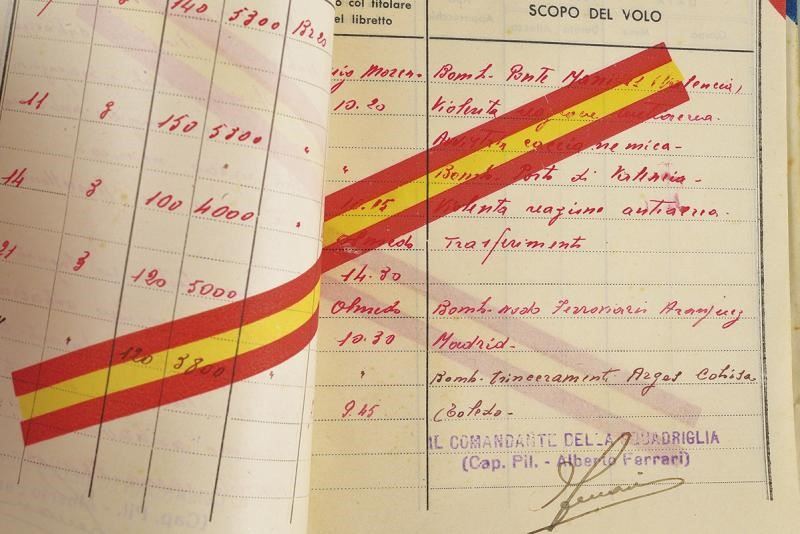 140 5300 Bres
o col titolare
el libretto
SCOPO DEL VOLO
Bomb. Ponte (Valencia)
11 3 150 5300 "
10.20 Violenta reazione antiaerea.
Avvistata caccia nemica.
" Bomb. Porto di Valencia.
14 3 100 4000 "
Violenta reazione antiaerea.
Trasferimento
21 3 120 5000
14.30
Olmedo Bomb. nodo Ferroviario Aranjuez
10.30 Madrid.
" 120 3800 "
" Bomb. trinceramenti
9.45 (Toledo.
IL COMANDANTE DELLA SQUADRIGLIA
(Cap. Pil. - Alberto Ferrari)
Ferrari